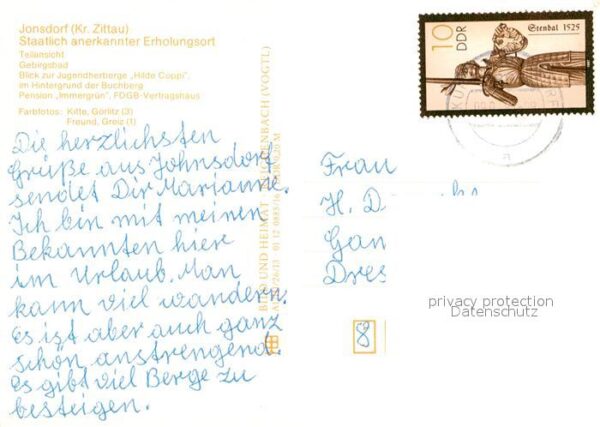 Jonsdorf (Kr. Zittau)
Staatlich anerkannter Erholungsort
Teilansicht
Gebirgsbad
Blick zur Jugendherberge „Hilde Coppi",
im Hintergrund der Buchberg
Pension „Immergrün", FDGB-Vertragshaus
Farbfotos: Kitte, Görlitz (3)
Freund, Greiz (1)
Die herzlichsten
Grüße aus Johnsdorf
sendet Dir Marianne.
Ich bin mit meinen
Bekannten hier
im Urlaub. Man
kann viel wandern.
Es ist aber auch ganz
schön anstrengend.
Es gibt viel Berge zu
besteigen.
BILD UND HEIMAT REICHENBACH (VOGTL)
01 12 0883/16
10
DDR
Stendal 1525
Frau
H. D
Gan
Dres
8
privacy protection
Datenschutz